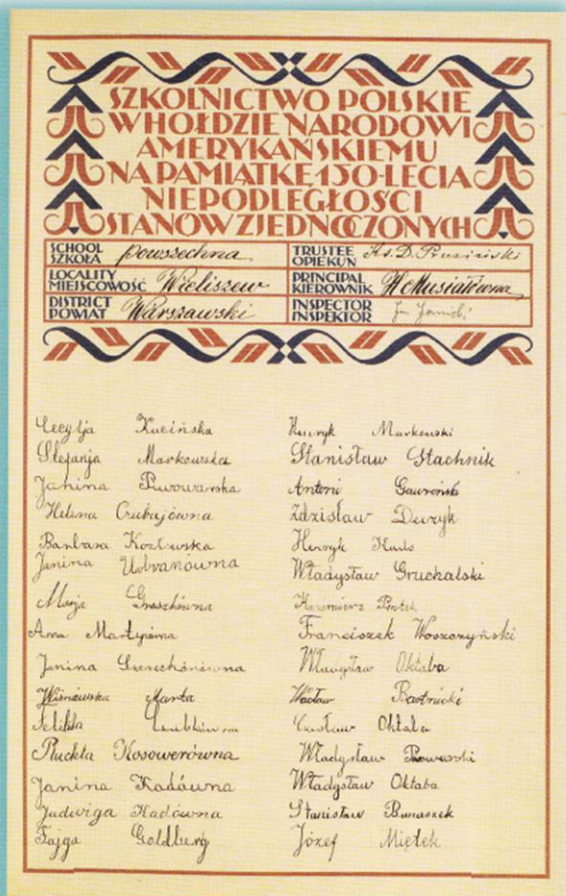 SZKOLNICTWO POLSKIE
W HOŁDZIE NARODOWI
AMERYKAŃSKIEMU
NA PAMIĄTKĘ 150-LECIA
NIEPODLEGŁOŚCI
STANÓW ZJEDNOCZONYCH
SCHOOL
SZKOŁA powszechna
TRUSTEE
OPIEKUN Ks. D.
LOCALITY
MIEJSCOWOŚĆ Wieliszew
PRINCIPAL
KIEROWNIK H. Musiałówna
DISTRICT
POWIAT Warszawski
INSPECTOR
INSPEKTOR
Cecylja Kucińska
Stefanja Markowska
Janina Piwowarska
Helena Czubajówna
Barbara Kozłowska
Janina Urbanówna
Marja
Anna
Janina
Wiśniewska Marta
Ruchla Kosowerówna
Janina Kadówna
Jadwiga Kadówna
Fajga Goldberg
Henryk Markowski
Stanisław Stachnik
Antoni Gawroński
Zdzisław
Henryk
Władysław Gruchalski
Kazimierz
Franciszek Woszczyński
Władysław Oktaba
Wacław Bartnicki
Czesław Oktaba
Władysław Piwowarski
Władysław Oktaba
Stanisław Banaszek
Józef Miętek